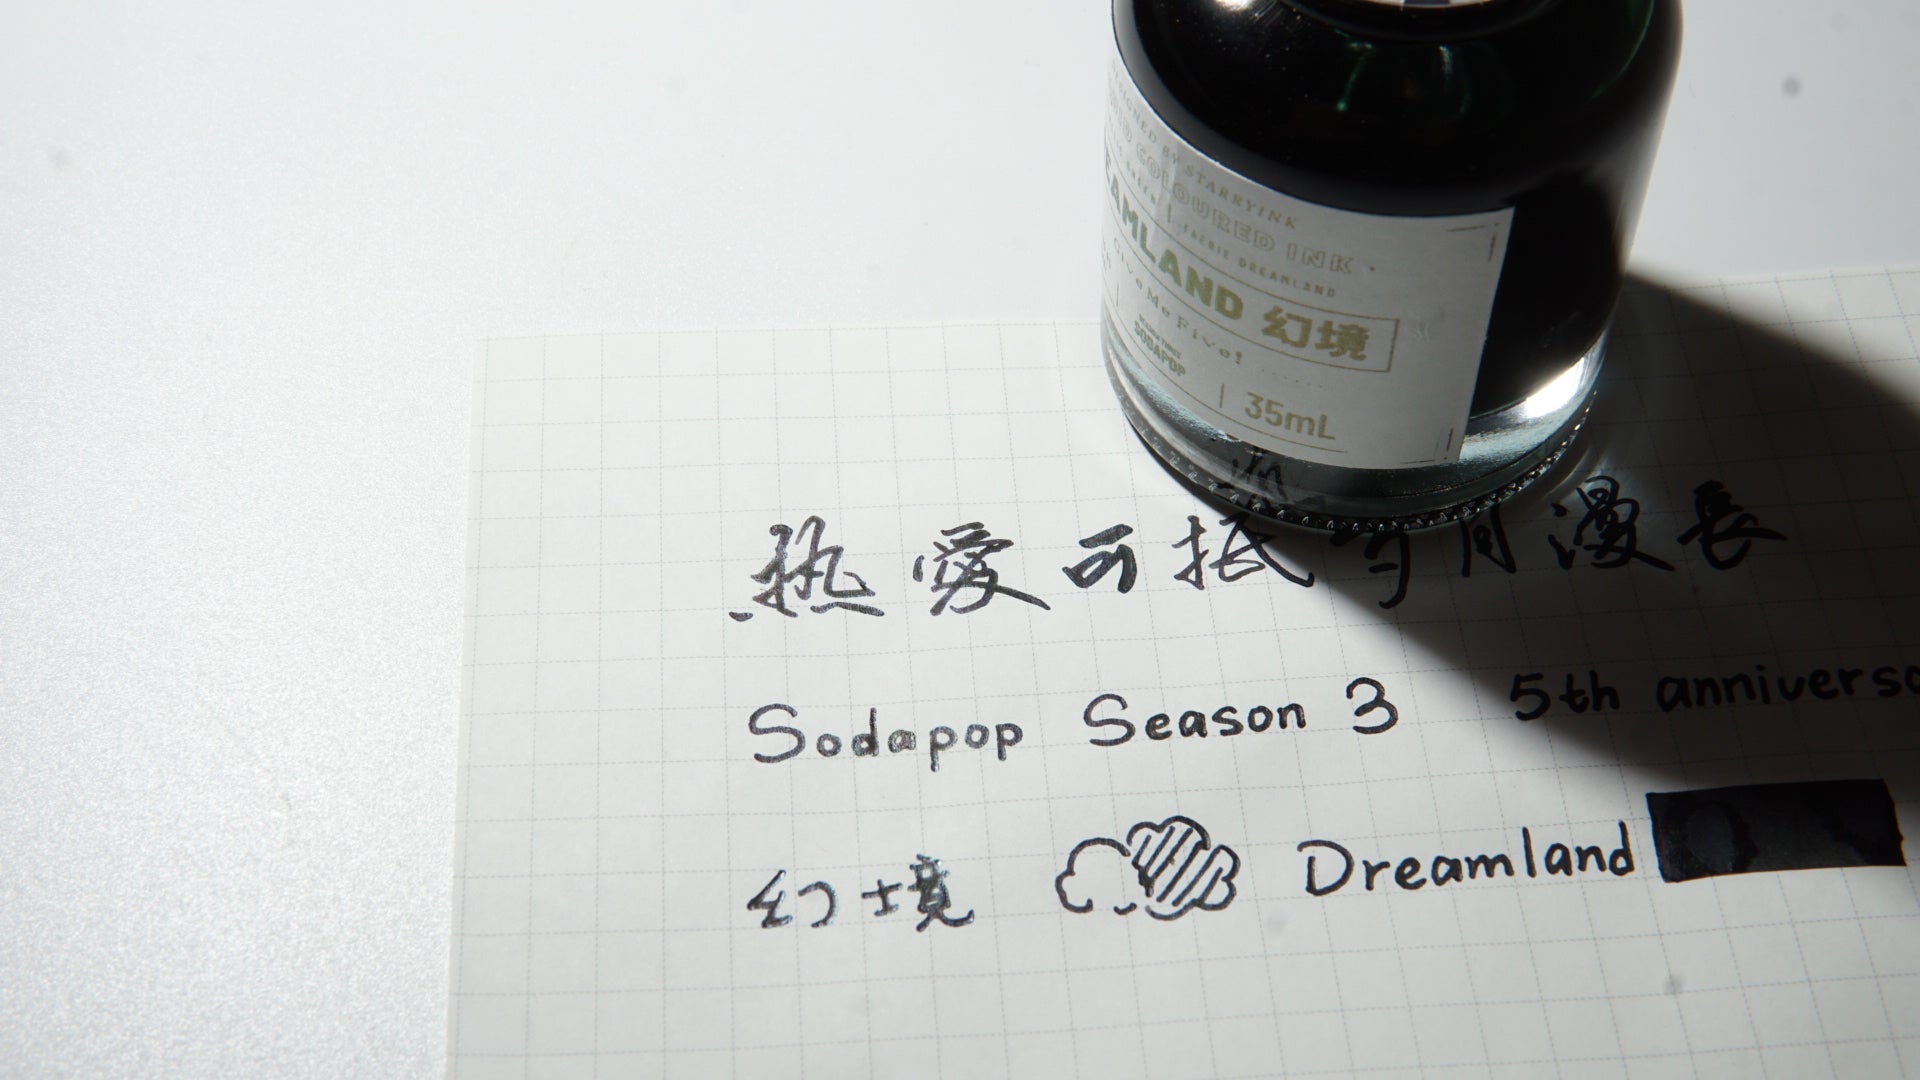 DESIGNED BY STARRYINK
COLOURED INK ·
FAERIE DREAMLAND
AMLAND 幻境
Give Me Five!
SODAPOP
35mL
热愛可抵岁月漫長
Sodapop Season 3 5th anniversa
幻境 Dreamland